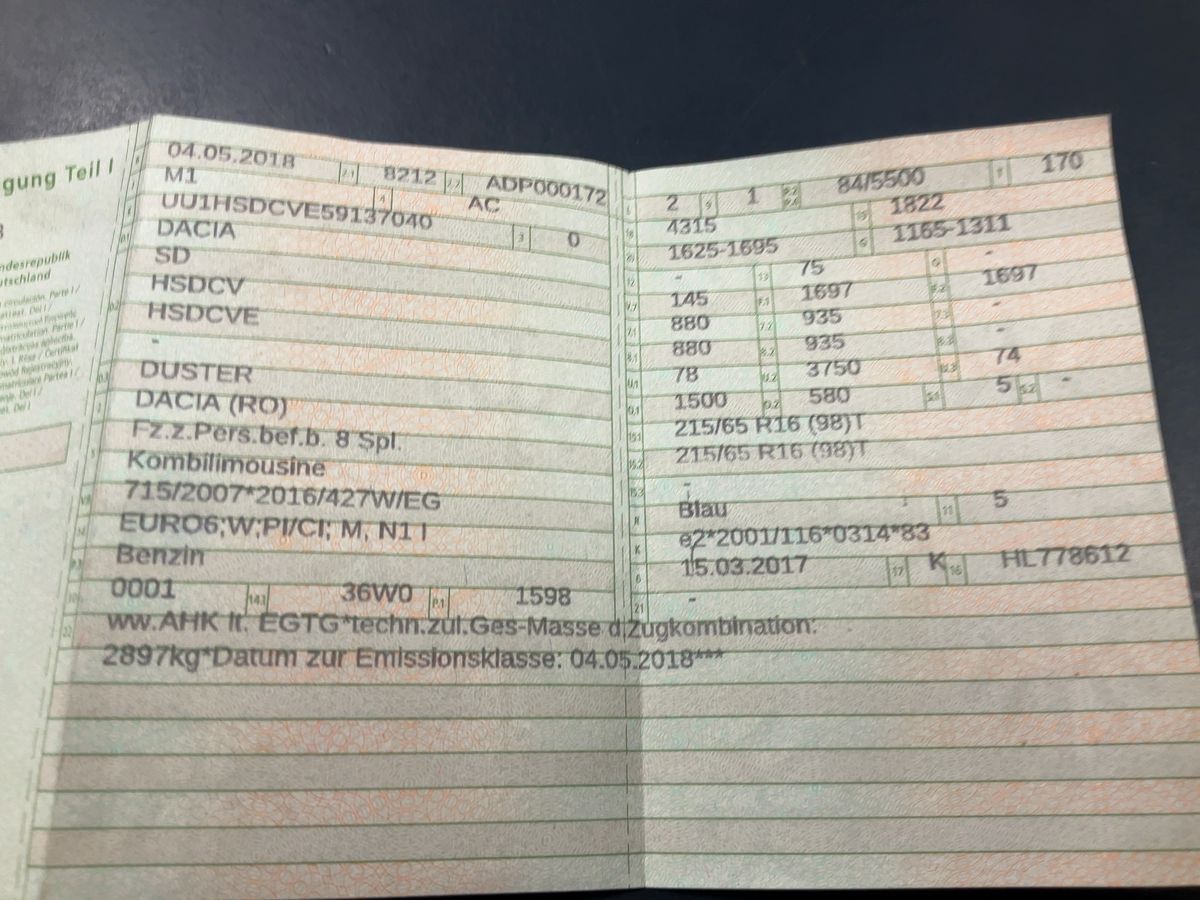 gung Teil I
ndesrepublik
utschland
04.05.2018 2.1 8212 2.2 ADP000172
M1 4 AC
UU1HSDCVE59137040 3 0
DACIA
SD
HSDCV
HSDCVE
-
DUSTER
DACIA (RO)
Fz.z.Pers.bef.b. 8 Spl.
Kombilimousine
715/2007*2016/427W/EG
EURO6;W;PI/CI; M, N1 I
Benzin
0001 14.1 36W0 P.1 1598
ww.AHK lt. EGTG*techn.zul.Ges-Masse d.Zugkombination:
2897kg*Datum zur Emissionsklasse: 04.05.2018***
2 9 1 P.2 P.4 84/5500 T 170
18 4315 19 1822
20 1625-1695 G 1165-1311
12 - 13 75 Q -
V.7 145 F.1 1697 F.2 1697
7.1 880 7.2 935 7.3 -
8.1 880 8.2 935 8.3 -
U.1 78 U.2 3750 U.3 74
O.1 1500 O.2 580 S.1 5 S.2 -
15.1 215/65 R16 (98)T
15.2 215/65 R16 (98)T
15.3 -
R Blau 11 5
K e2*2001/116*0314*83
6 15.03.2017 17 K 16 HL778612
21 -